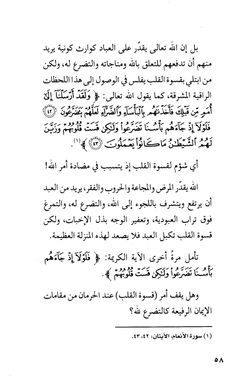 بل إن الله تعالى يقدّر على العباد كوارث كونية يريد
منهم أن تدفعهم للتعلق بالله ومناجاته والتضرع له، ولكن
من ابتلي بقسوة القلب يفلس في الوصول إلى هذا اللحظات
الراقية المشرقة، كما يقول الله تعالى: ﴿ وَلَقَدْ أَرْسَلْنَا إِلَىٰ
أُمَمٍ مِّن قَبْلِكَ فَأَخَذْنَاهُم بِالْبَأْسَاءِ وَالضَّرَّاءِ لَعَلَّهُمْ يَتَضَرَّعُونَ ﴿٤٢﴾
فَلَوْلَا إِذْ جَاءَهُم بَأْسُنَا تَضَرَّعُوا وَلَٰكِن قَسَتْ قُلُوبُهُمْ وَزَيَّنَ
لَهُمُ الشَّيْطَانُ مَا كَانُوا يَعْمَلُونَ ﴿٤٣﴾ ﴾(١)
أي شؤم لقسوة القلب إذ يتسبب في مضادة أمر الله!
الله يقدّر المرض والمجاعة والحروب والفقر، يريد من العبد
أن يرتفع ويتشرف باللجوء إلى الله، والتضرع له، والتمرغ
فوق تراب العبودية، وتعفير الوجه بذل الإخبات، ولكن
قسوة القلب تكبل العبد فلا يصعد لهذه المنزلة العظيمة.
تأمل مرةً أخرى الآية الكريمة: ﴿ فَلَوْلَا إِذْ جَاءَهُم
بَأْسُنَا تَضَرَّعُوا وَلَٰكِن قَسَتْ قُلُوبُهُمْ ﴾.
وهل يقف أمر (قسوة القلب) عند الحرمان من مقامات
الإيمان الرفيعة كالتضرع لله؟
(١) سورة الأنعام، الآيتان: ٤٢، ٤٣.
٥٨